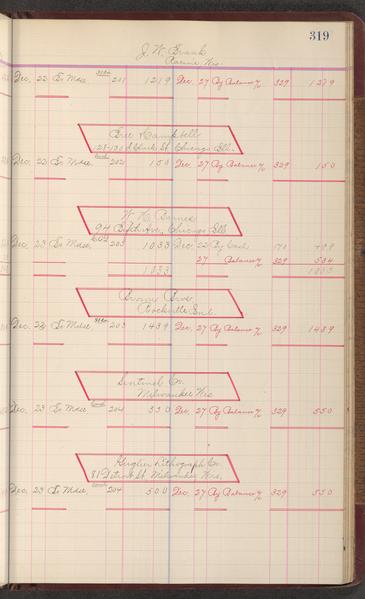 319
J. W.
Racine, Wis.
Dec. 22 To Mdse. 201 1219 Dec. 27 By Balance 329 1219
Eric Campbell
128-130 S. Clark St. Chicago Ill.
Dec. 22 To Mdse. 202 150 Dec. 27 By Balance 329 150
W. H. Barnes
94 Fifth Ave, Chicago Ill
Dec. 23 To Mdse. 203 1033 Dec. 22 By Cash
27 Balance 329 534
1033 1033
Bros.
Rockville Ind.
Dec. 23 To Mdse. 203 1439 Dec. 27 By Balance 329 1439
Sentinel Co.
Milwaukee Wis
Dec. 23 To Mdse. 204 550 Dec. 27 By Balance 329 550
Gugler Lithograph Co.
Detroit St. Milwaukee, Wis.
Dec. 23 To Mdse. 204 500 Dec. 27 By Balance 329 550